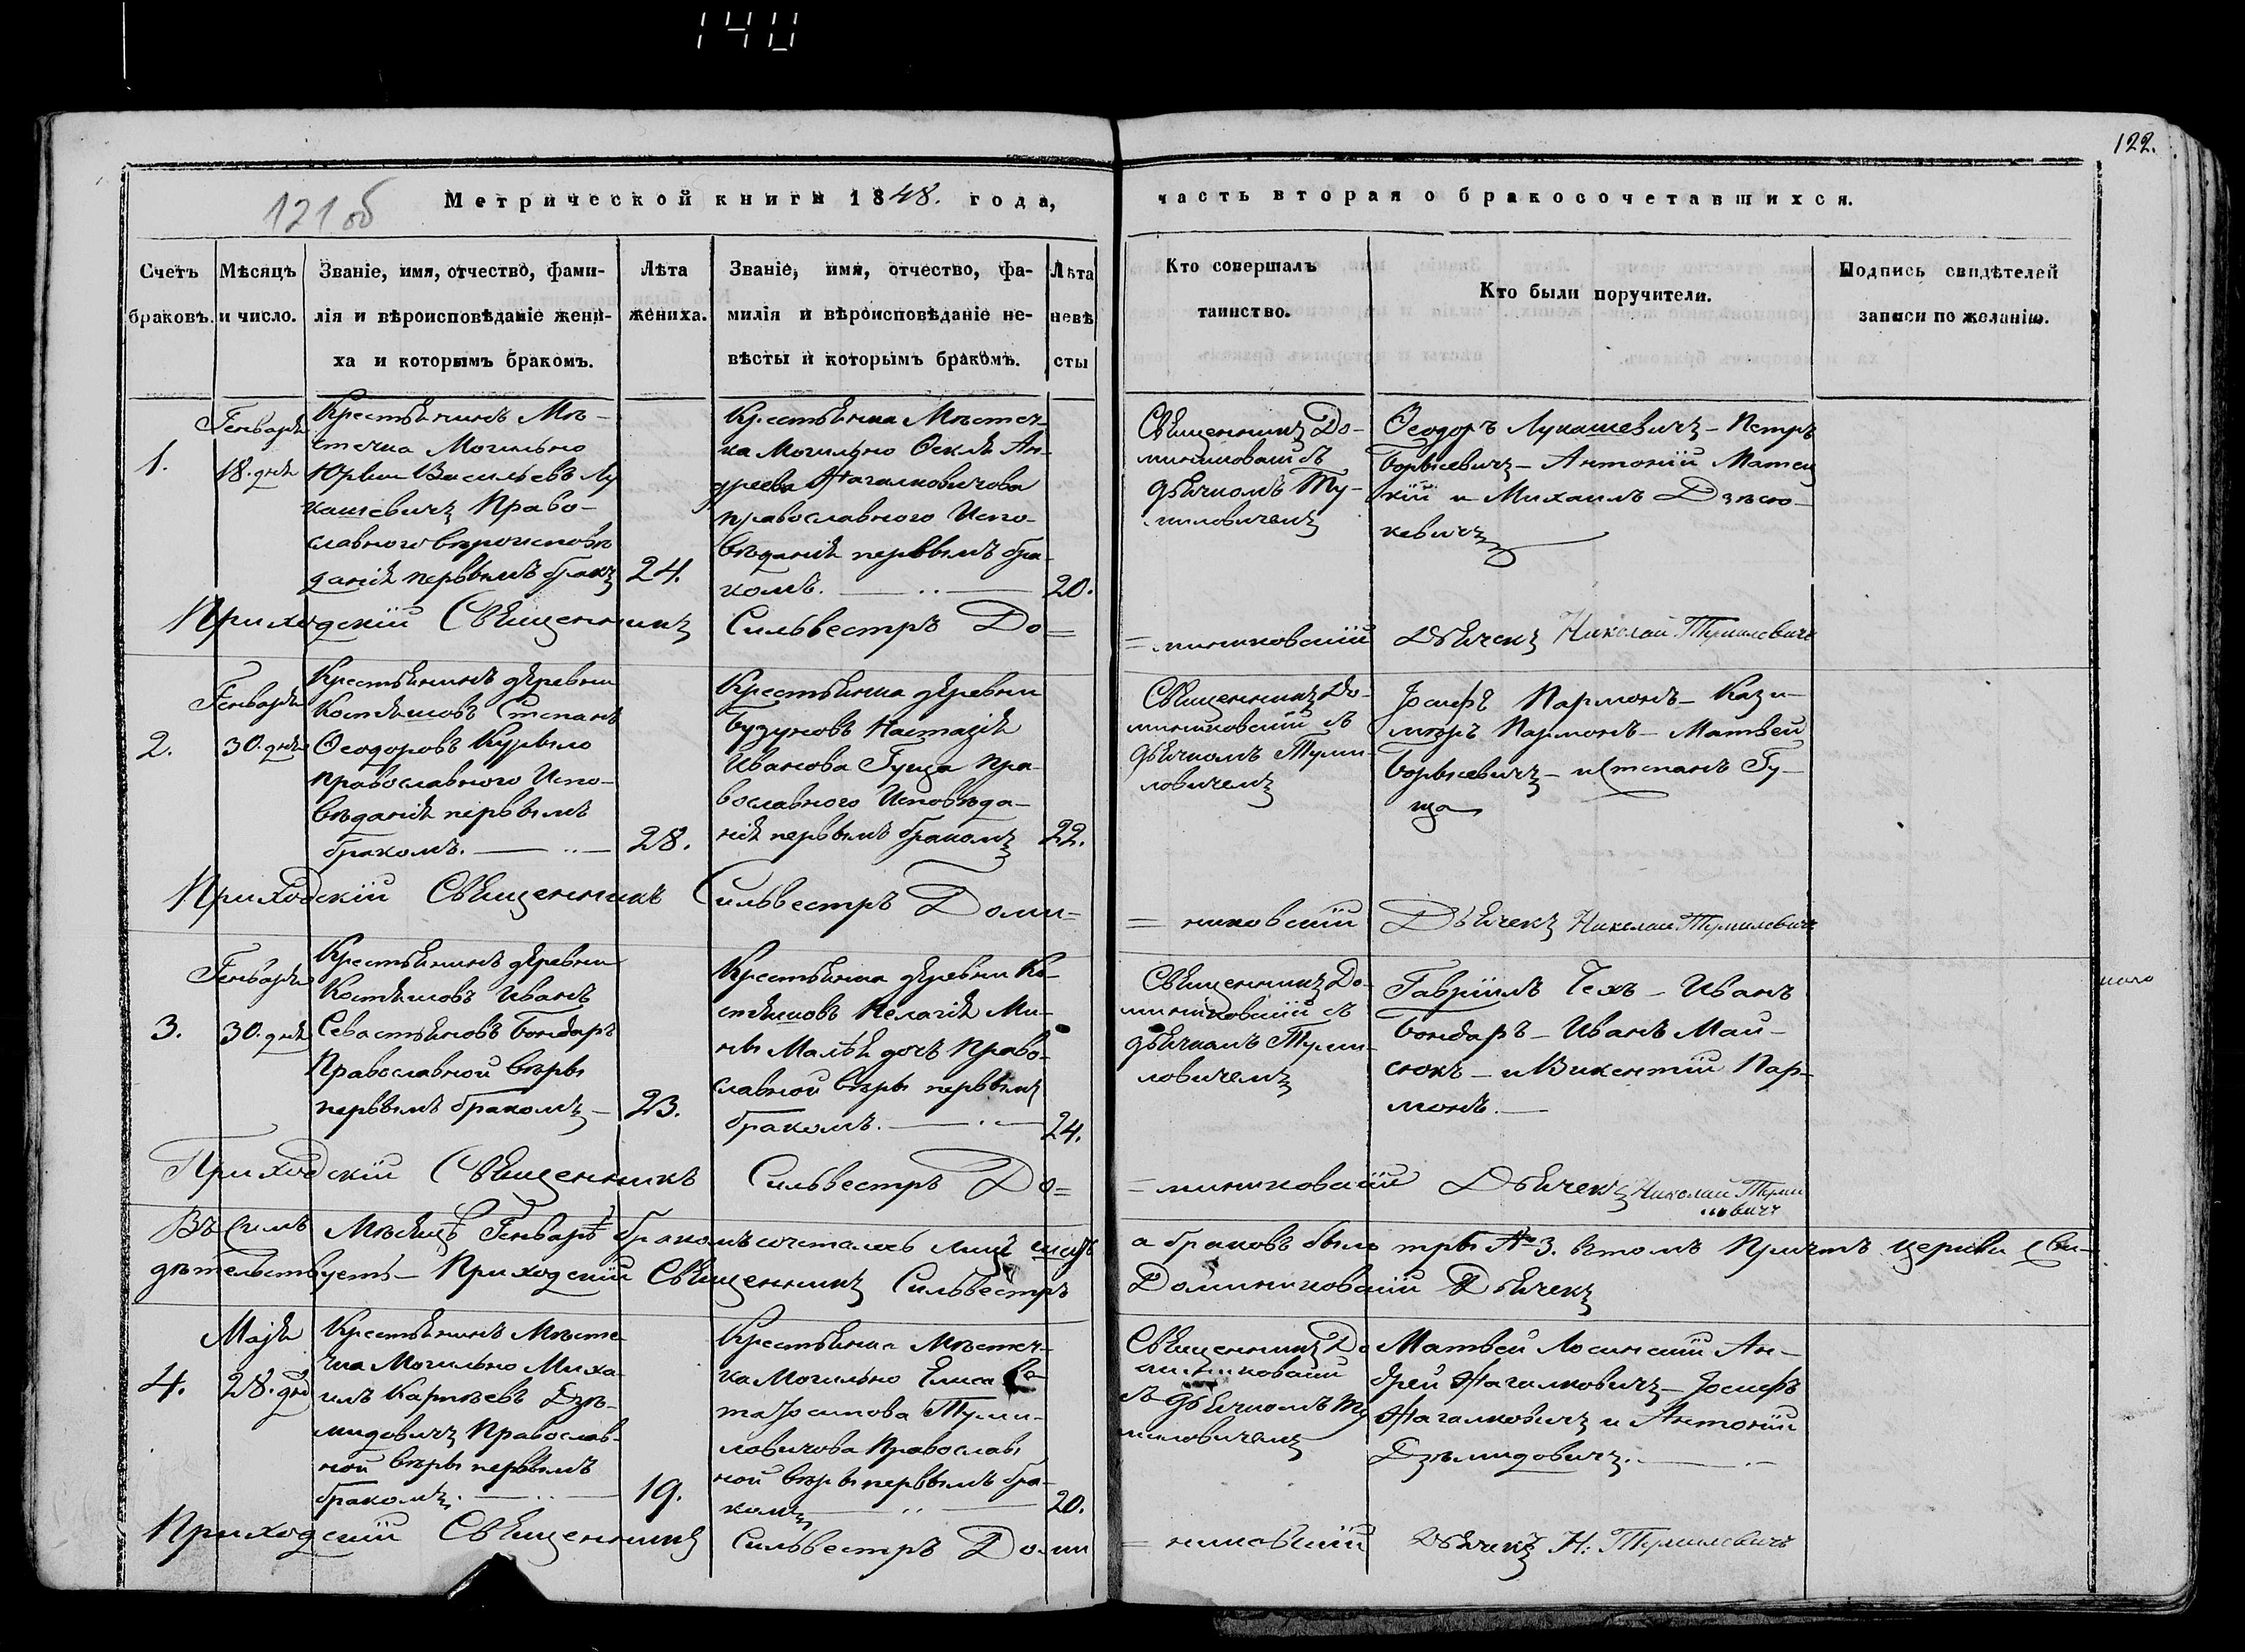 140
122.
121 об
Метрической книги 1848. года,
часть вторая о бракосочетавшихся.
Счетъ браковъ.
Мѣсяцъ и число.
Званіе, имя, отчество, фами-
лія и вѣроисповѣданіе жени-
ха и которымъ бракомъ.
Лѣта
жениха.
Званіе, имя, отчество, фа-
милія и вѣроисповѣданіе не-
вѣсты и которымъ бракомъ.
Лѣта
невѣ
сты
Кто совершалъ
таинство.
Кто были поручители.
Подпись свидѣтелей
записи по желанію.
1.
Генваря
18. дня
Крестьянинъ Мѣ-
стечка Могильно
Юрій Васильевъ Лу
кашевичъ Право-
славного вѣроисповѣ
данія первымъ брак
24.
Крестьянка Мѣстеч-
ка Могильно Текля Ан-
дреева Жагалковичова
православного Испо-
вѣданія первымъ бра-
комъ.
20.
Священникъ До-
миниковскій съ
дьячкомъ Ту-
миловичемъ
Ѳеодоръ Лукашевичъ - Петръ
Борысевичъ - Антоній Матец
кій и Михаилъ Дзѣсю-
кевичъ
Приходскій Священникъ Сильвестръ До=
=миниковскій Дьячекъ Николай Тумиловичъ
2.
Генваря
30. дня
Крестьянинъ деревни
Костяшовъ Степанъ
Ѳеодоровъ Курыло
православного Испо-
вѣданія первымъ
бракомъ.
28.
Крестьянка деревни
Бузуновъ Настазія
Иванова Гуща пра-
вославного Исповѣда-
нія первымъ бракомъ
22.
Священникъ До-
миниковскій съ
дьячкомъ Туми-
ловичемъ
Іосифъ Пармонъ - Кази-
миръ Пармонъ - Матвей
Борысевичъ - и Степанъ Гу-
ща
Приходскій Священникъ Сильвестръ Доми=
= никовскій Дьячекъ Николай Тумиловичъ
3.
Генваря
30. дня
Крестьянинъ деревни
Костяшовъ Иванъ
Севастьяновъ Бондаръ
Православной вѣры
первымъ бракомъ -
23.
Крестьянка деревни Ко-
стяшовъ Пелагія Ми-
ны дочь Право-
славной вѣры первымъ
бракомъ.
24.
Священникъ До-
миниковскій съ
дьячкамъ Туми-
ловичемъ
Гавріилъ Чехъ - Иванъ
Бондаръ - Иванъ Май-
сюкъ - и Викентій Пар-
монъ.
Приходскій Священникъ Сильвестръ До=
= миниковскій Дьячекъ Николай Туми
ловичъ
Въ семъ Мѣсяцѣ Генварѣ бракомъ сочеталось лицъ шесть а браковъ было тры № 3. въ томъ Причтъ церкви сви-
дѣтельствуетъ - Приходскій Священникъ Сильвестръ Доминиковскій Дьячекъ
4.
Маія
28. дня
Крестьянинъ Мѣсте-
чка Могильно Миха-
илъ Карпѣевъ Дзѣ-
мидовичъ Православ-
ной вѣры первымъ
бракомъ.
19.
Крестьянка Мѣстеч-
ка Могильно Елисаве-
та Іосипова Туми-
ловичова Православ
ной вѣры первымъ бра-
комъ
20.
Священникъ До
миниковскій
съ дьячкомъ Ту
миловичемъ
Матвей Лосинскій Ан-
дрей Жагалковичъ - Іосифъ
Жагалковичъ и Антоній
Дзѣмидовичъ.
Приходскій Священникъ Сильвестръ Доми
= никовскій Дьячекъ Н: Тумиловичъ